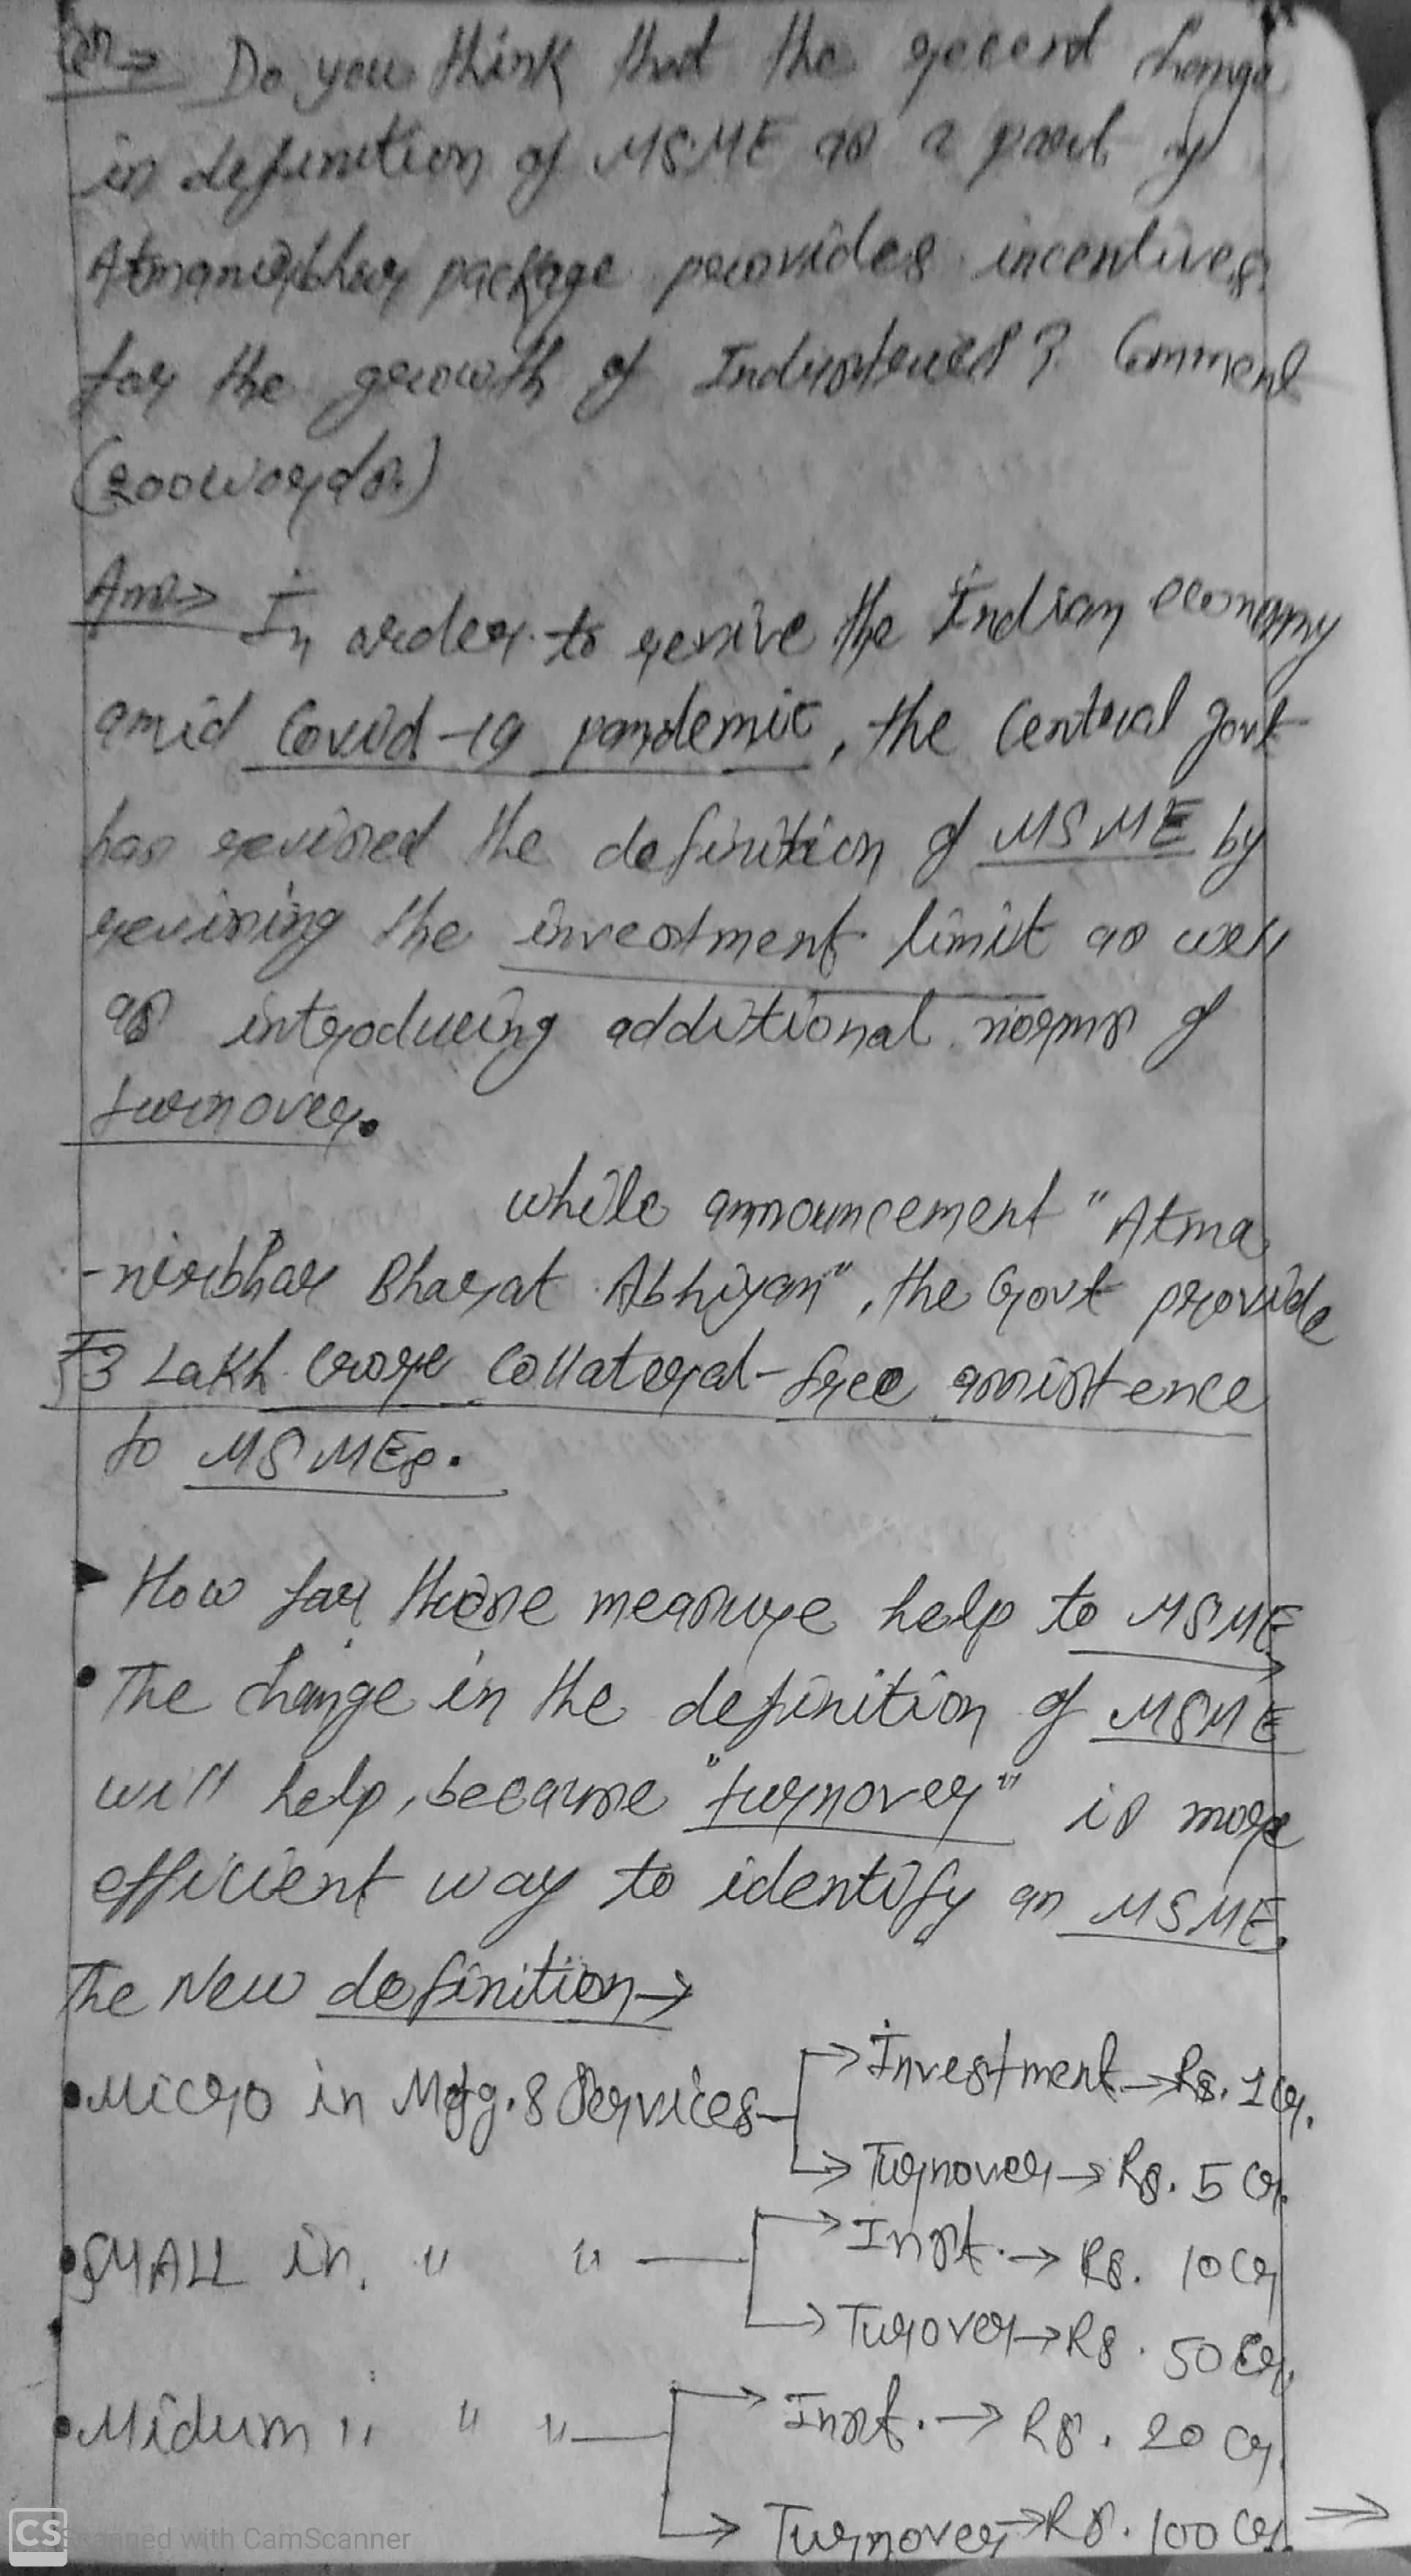 Do you think that the recent change
in definition of MSME as a part of
Atmanirbhar package provides incentives
for the growth of Industries? Comment
(200 words)
Ans→ In order to revive the Indian economy
amid Covid-19 pandemic, the Central Govt
has revised the definition of MSME by
revising the investment limit as well
as introducing additional norms of
turnover.
while announcement "Atma
-nirbhar Bharat Abhiyan", the Govt provide
₹3 Lakh Crore Collateral-free assistence
to MSMEs.
How far these measure help to MSME
• The change in the definition of MSME
will help, because "turnover" is more
efficient way to identify an MSME.
The New definition→
• Micro in Mfg. & Services → Investment → Rs. 1 Cr.
→ Turnover → Rs. 5 Cr.
• SMALL in. " " → Inst. → Rs. 10 Cr
→ Turover → Rs. 50 Cr.
• Midum " " " → Inst. → Rs. 20 Cr.
→ Turnover → Rs. 100 Cr. ⇒
CS Scanned with CamScanner